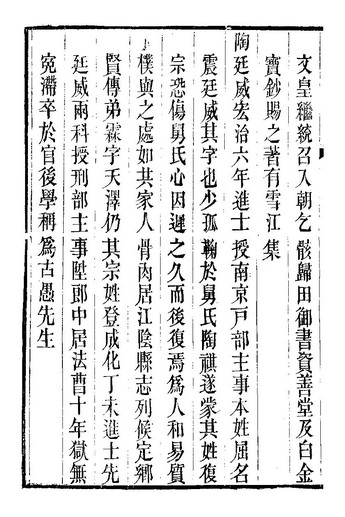 文皇繼統召入朝乞骸歸田御書資善堂及白金
寶鈔賜之著有雪江集
陶廷威宏治六年進士授南京戸部主事本姓屈名
震廷威其字也少孤鞠於舅氏陶祺遂蒙其姓復
宗恐傷舅氏心因遲之久而後復焉為人和易質
樸與之處如共家人骨肉居江陰縣志列候定鄉
賢傳弟霖字天澤仍其宗姓登成化丁未進士先
廷威兩科授刑部主事陞郎中居法曹十年獄無
寃滯卒於官後學稱為古愚先生